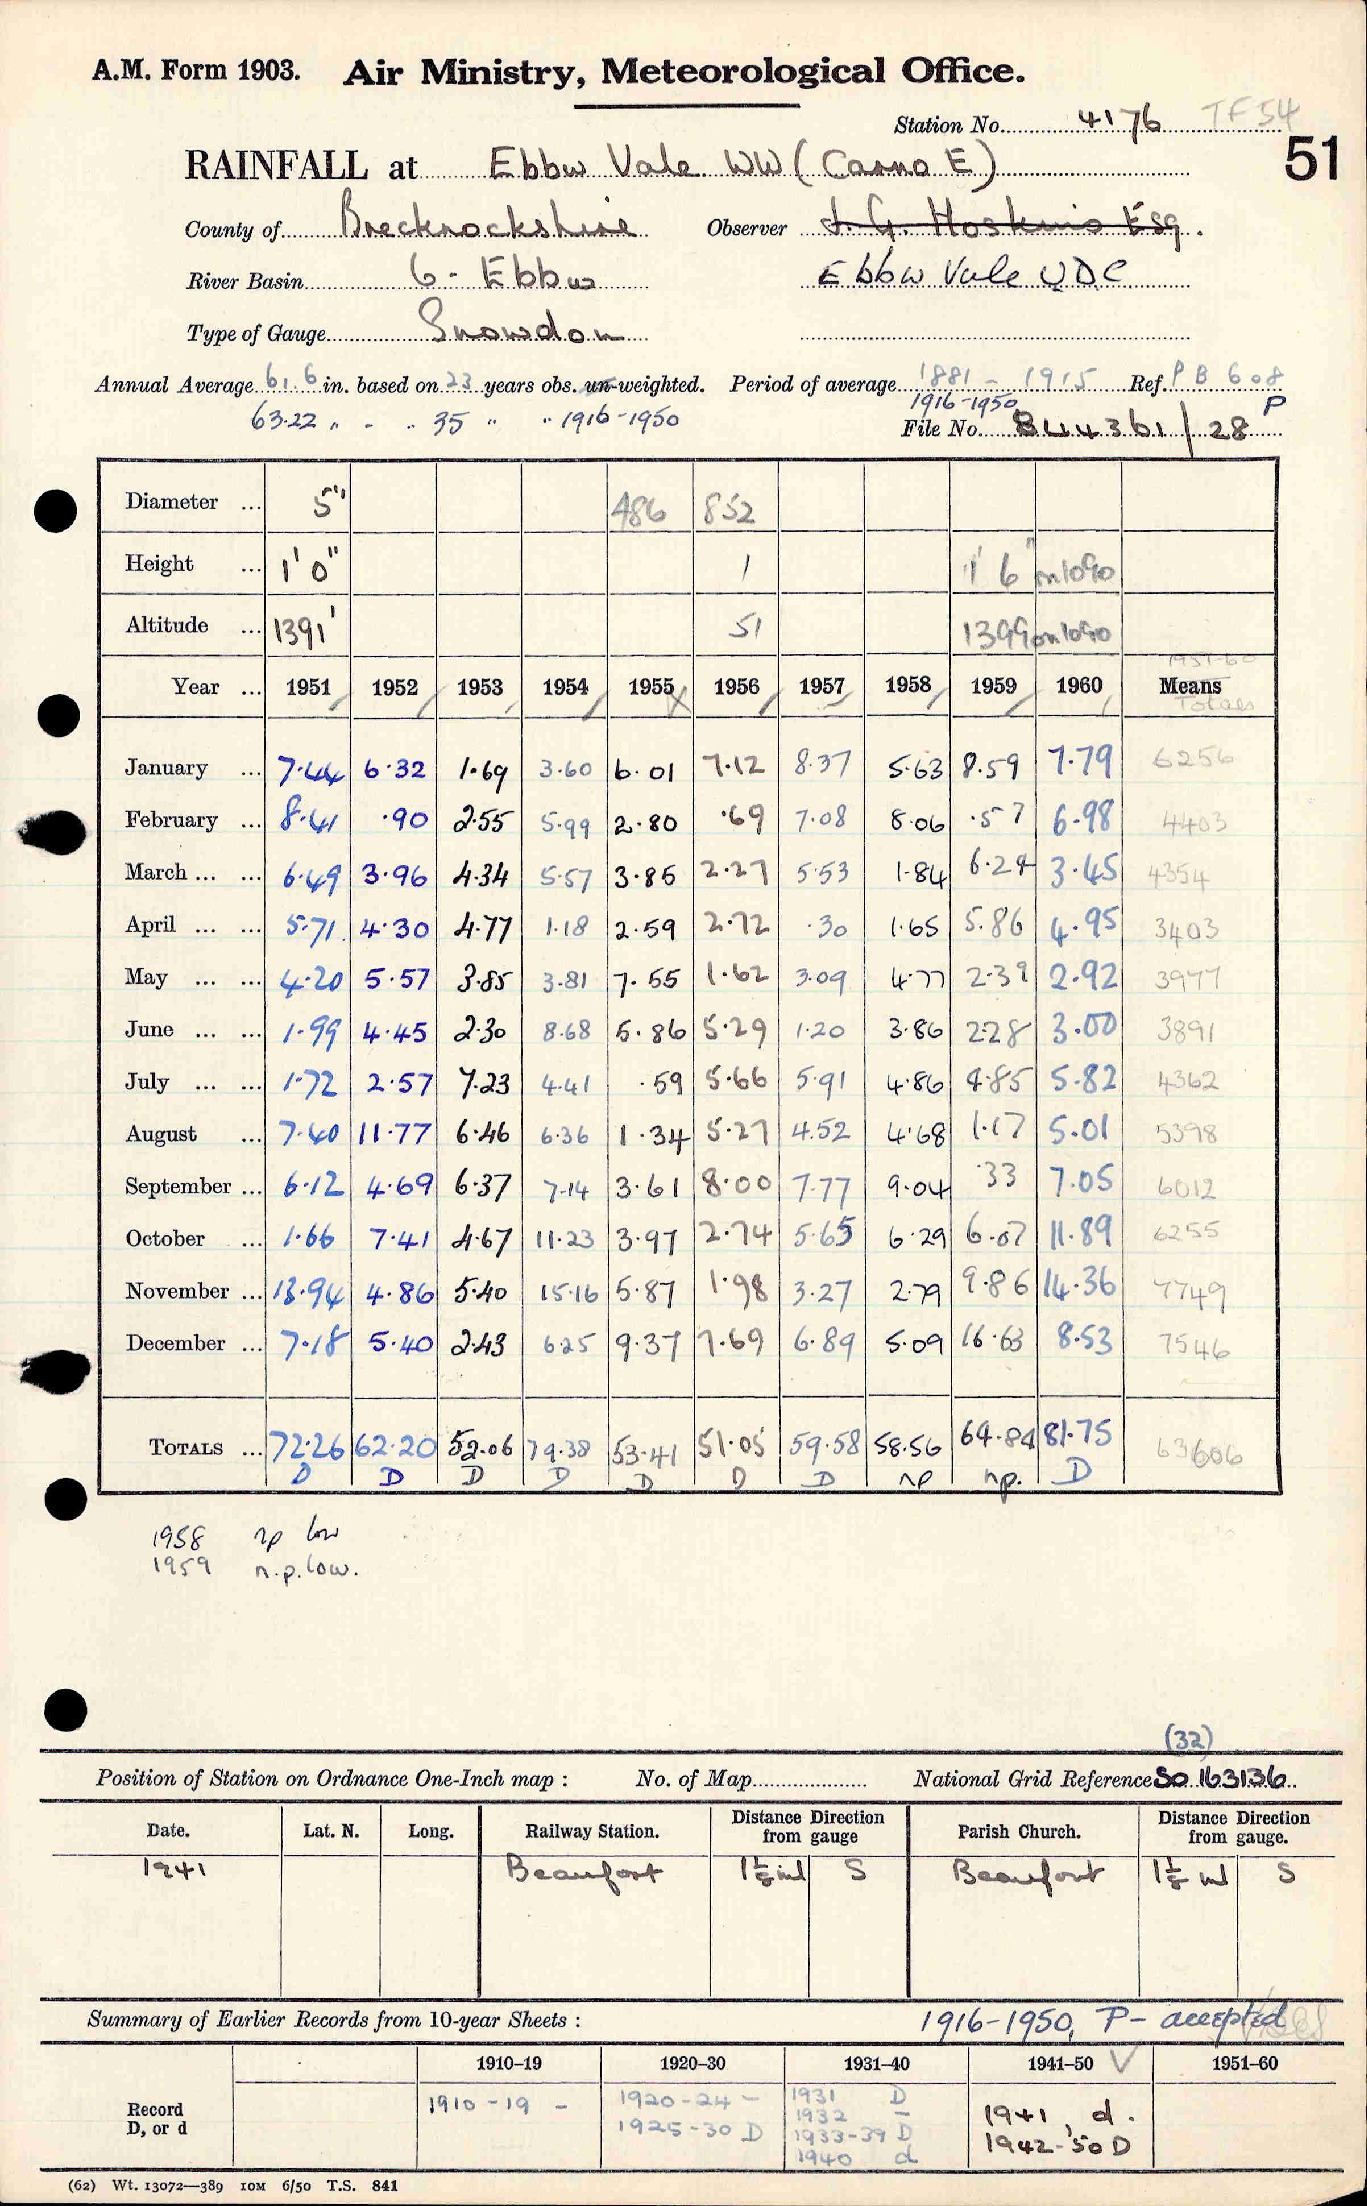 A.M. Form 1903. Air Ministry, Meteorological Office.
Station No. 4176 TF54
51
RAINFALL at Ebbw Vale WW (Carno E)
County of Brecknockshire Observer J. G. Hoskins Esq.
River Basin 6 - Ebbw Ebbw Vale UDC
Type of Gauge Snowdon
Annual Average 61.6 in. based on 23 years obs. un-weighted. Period of average 1881 - 1915 Ref. PB 608
63.22 " - .. 35 " " 1916-1950 1916-1950 P
File No. BU4361/28
Diameter ... 5" 486 852
Height ... 1' 0" 1 1' 6" on 1090
Altitude ... 1391' 51 1399 on 1090
1951-60
Year ... 1951 1952 1953 1954 1955 1956 1957 1958 1959 1960 Means
Totals
January ... 7.44 6.32 1.69 3.60 6.01 7.12 8.37 5.63 8.59 7.79 6256
February ... 8.41 .90 2.55 5.99 2.80 .69 7.08 8.06 .57 6.98 4403
March ... ... 6.49 3.96 4.34 5.57 3.85 2.27 5.53 1.84 6.24 3.45 4354
April ... ... 5.71 4.30 4.77 1.18 2.59 2.72 .30 1.65 5.86 4.95 3403
May ... ... 4.20 5.57 3.85 3.81 7.55 1.62 3.09 4.77 2.39 2.92 3977
June ... ... 1.99 4.45 2.30 8.68 5.86 5.29 1.20 3.86 2.28 3.00 3891
July ... ... 1.72 2.57 7.23 4.41 .59 5.66 5.91 4.86 4.85 5.82 4362
August ... 7.40 11.77 6.46 6.36 1.34 5.27 4.52 4.68 1.17 5.01 5398
September ... 6.12 4.69 6.37 7.14 3.61 8.00 7.77 9.04 .33 7.05 6012
October ... 1.66 7.41 4.67 11.23 3.97 2.74 5.65 6.29 6.07 11.89 6255
November ... 13.94 4.86 5.40 15.16 5.87 1.98 3.27 2.79 9.86 14.36 7749
December ... 7.18 5.40 2.43 6.25 9.37 7.69 6.89 5.09 16.63 8.53 7546
TOTALS ... 72.26 62.20 52.06 79.38 53.41 51.05 59.58 58.56 64.84 81.75 63606
D D D D D D D np np. D
1958 np low
1959 n.p. low.
(32)
Position of Station on Ordnance One-Inch map : No. of Map National Grid Reference SO 163136
Date. Lat. N. Long. Railway Station. Distance Direction from gauge Parish Church. Distance Direction from gauge.
1941 Beaufort 1½ ml S Beaufort 1½ ml S
Summary of Earlier Records from 10-year Sheets : 1916-1950, P - accepted
1910–19 1920–30 1931–40 1941–50 1951–60
Record D, or d
1910-19 -
1920-24 -
1925-30 D
1931 D
1932 -
1933-39 D
1940 d
1941, d.
1942-'50 D
(62) Wt. 13072—389 10M 6/50 T.S. 841